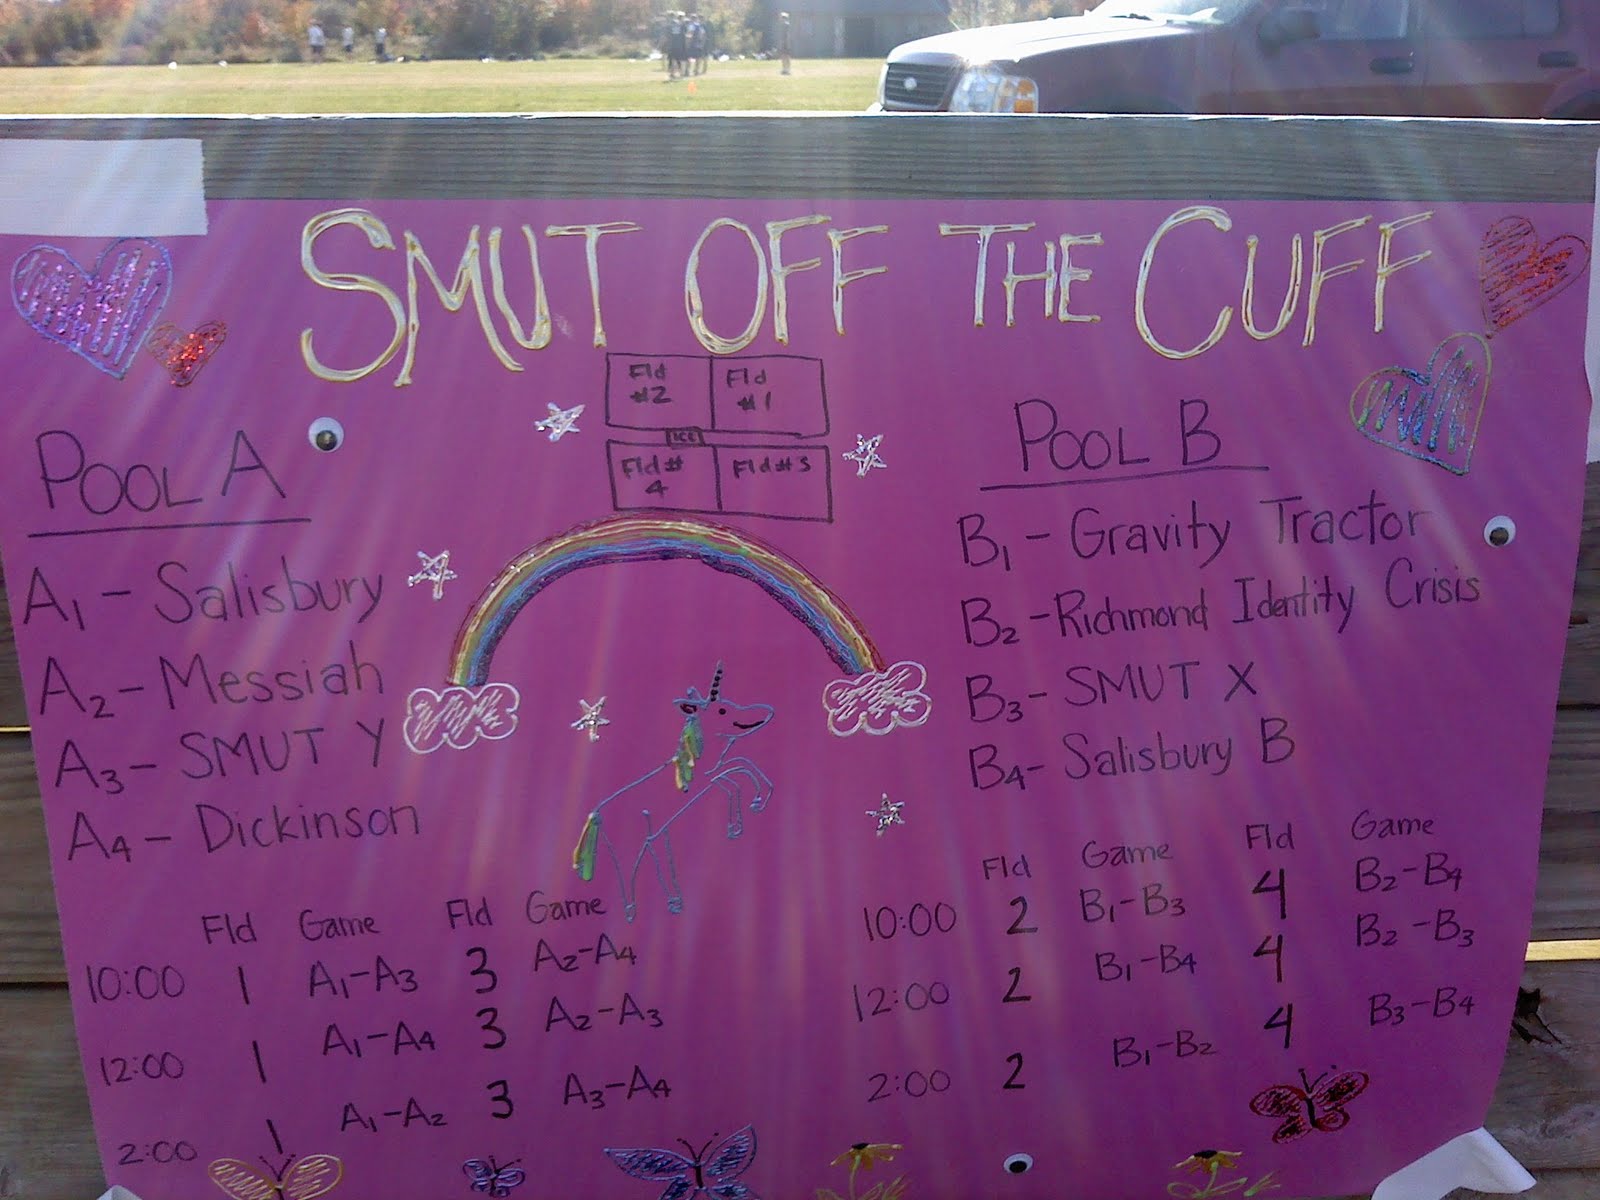 SMUT OFF THE CUFF
Fld #2
Fld #1
ICE
Fld # 4
Fld #3
POOL A
A1 - Salisbury
A2 - Messiah
A3 - SMUT Y
A4 - Dickinson
POOL B
B1 - Gravity Tractor
B2 - Richmond Identity Crisis
B3 - SMUT X
B4 - Salisbury B
Fld Game Fld Game
10:00 1 A1-A3 3 A2-A4
12:00 1 A1-A4 3 A2-A3
2:00 1 A1-A2 3 A3-A4
Fld Game Fld Game
10:00 2 B1-B3 4 B2-B4
12:00 2 B1-B4 4 B2-B3
2:00 2 B1-B2 4 B3-B4